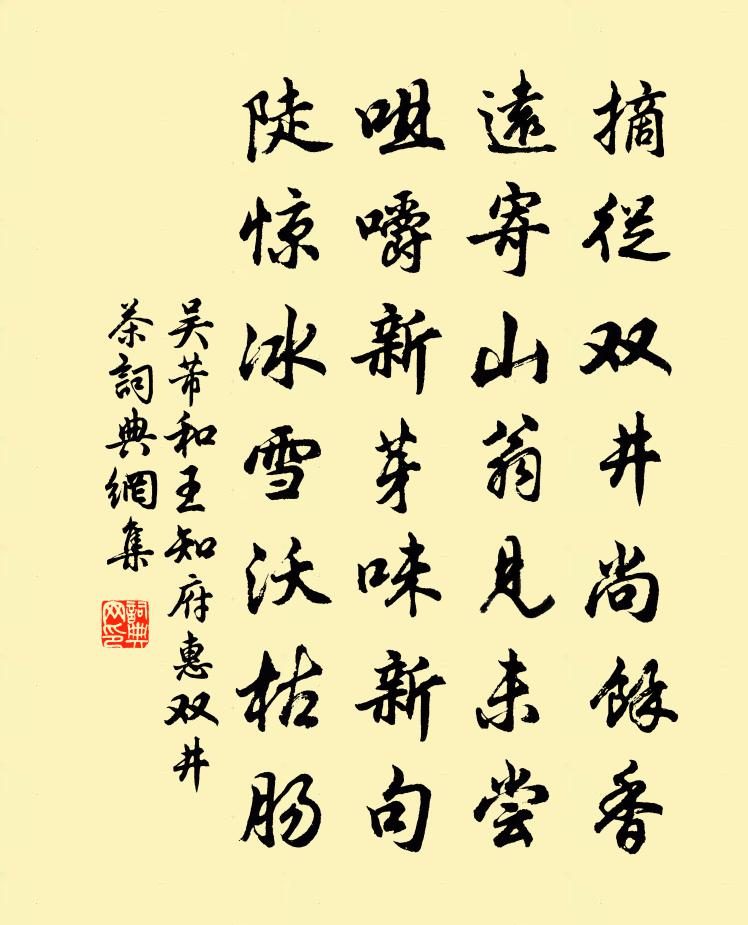 摘從双井尚餘香
遠寄山翁見未尝
咀嚼新芽味新句
陡惊冰雪沃枯肠
吴芾和王知府惠双井
茶詞典網集
詞典网印